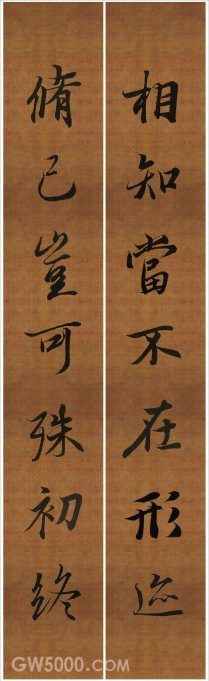 相知當不在形迹
脩己豈可殊初終
GW5000.com